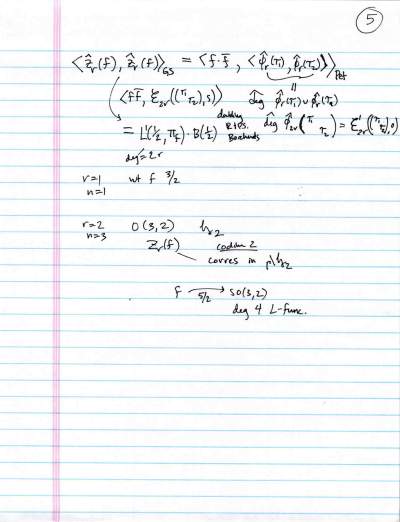 5
⟨ẑ_r(f), ẑ_r(f)⟩_GS = ⟨f·f̄, ⟨φ̂_r(τ₁), φ̂_r(τ₂)⟩⟩_Pet
⟨f f̄, E_2r((τ₁ τ₂), s)⟩ deg φ̂_r(τ₁) ∪ φ̂_r(τ₂)
= L'(½, π_f) · B(½) doubling deg φ̂_2r(τ₁ τ₂) = E'_2r((τ₁ τ₂), 0)
deg = 2r
r=1 wt f 3/2
n=1
r=2 O(3,2) h_2
n=3 Z_r(f) codim 2
corres in h_2
f 5/2 → SO(3,2)
deg 4 L-func.